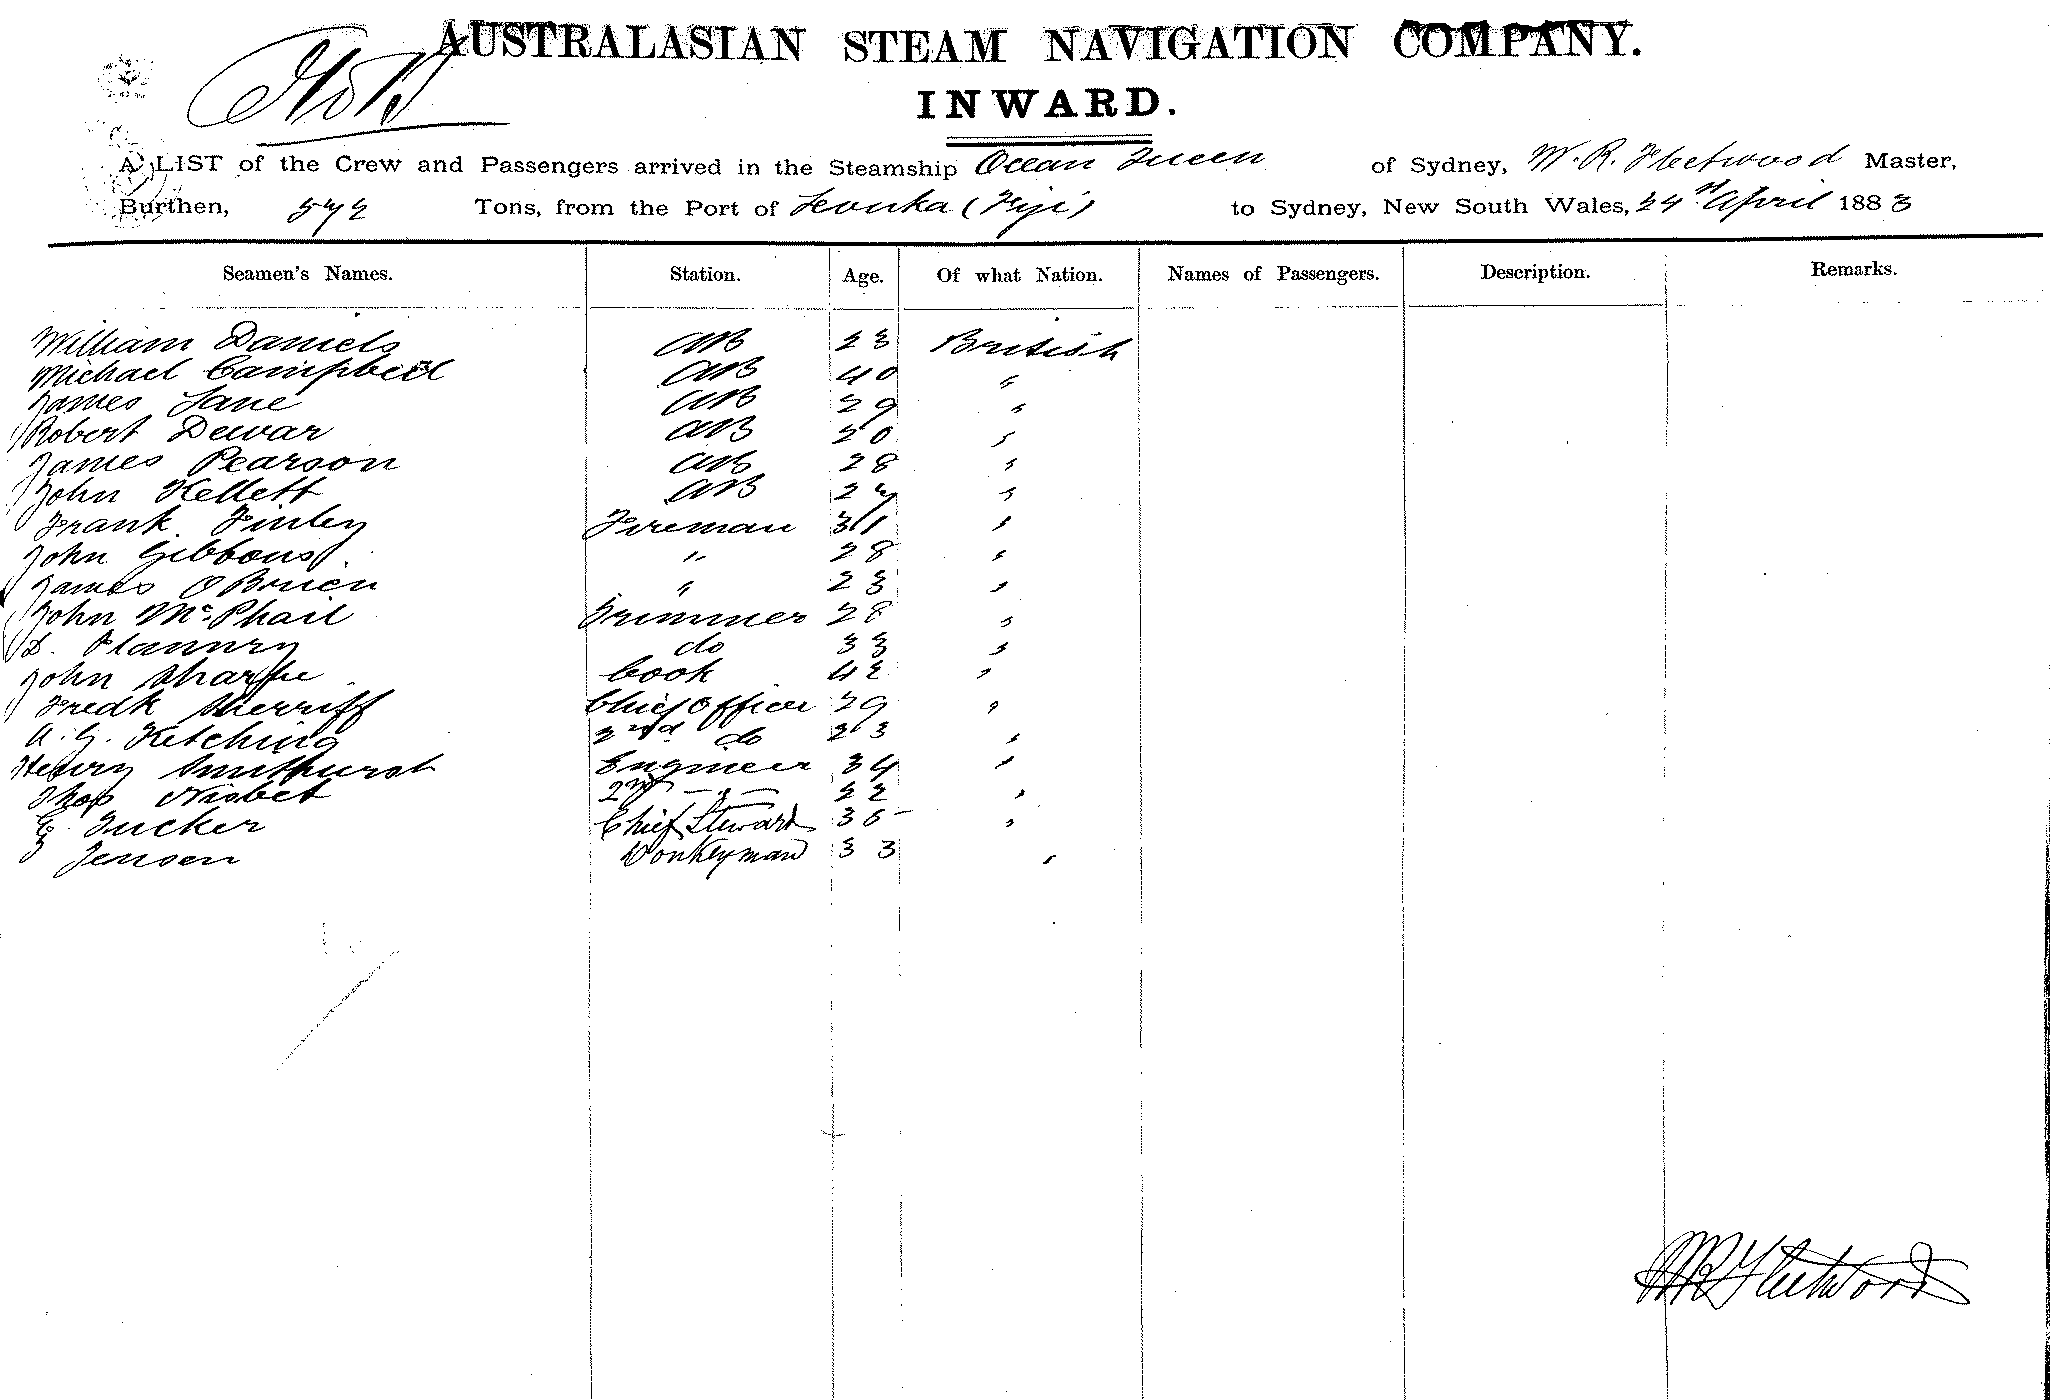 AUSTRALASIAN STEAM NAVIGATION COMPANY.
INWARD.
A LIST of the Crew and Passengers arrived in the Steamship Ocean Queen of Sydney, W. R. Fleetwood Master,
Burthen, 572 Tons, from the Port of Levuka (Fiji) to Sydney, New South Wales, 24th April 1883
Seamen's Names. Station. Age. Of what Nation. Names of Passengers. Description. Remarks.
William Daniels AB 23 British
Michael Campbell AB 40 "
James Lane AB 29 "
Robert Dewar AB 20 "
James Pearson AB 28 "
John Kellett AB "
Frank Finley Fireman 31 "
John Gibbons " 28 "
James OBrien " 23 "
John McPhail Trimmer 28 "
Flannry do 33 "
John Sharpe Cook 42 "
Fredk Sherriff Chief Officer 29 "
A. G. Ketching 2nd do 23 "
Henry Smithurst Engineer 34 "
Thos Nisbet 2nd " 22 "
Tucker Chief Steward 35 "
Jensen Donkeyman 33 "
WR Fleetwood